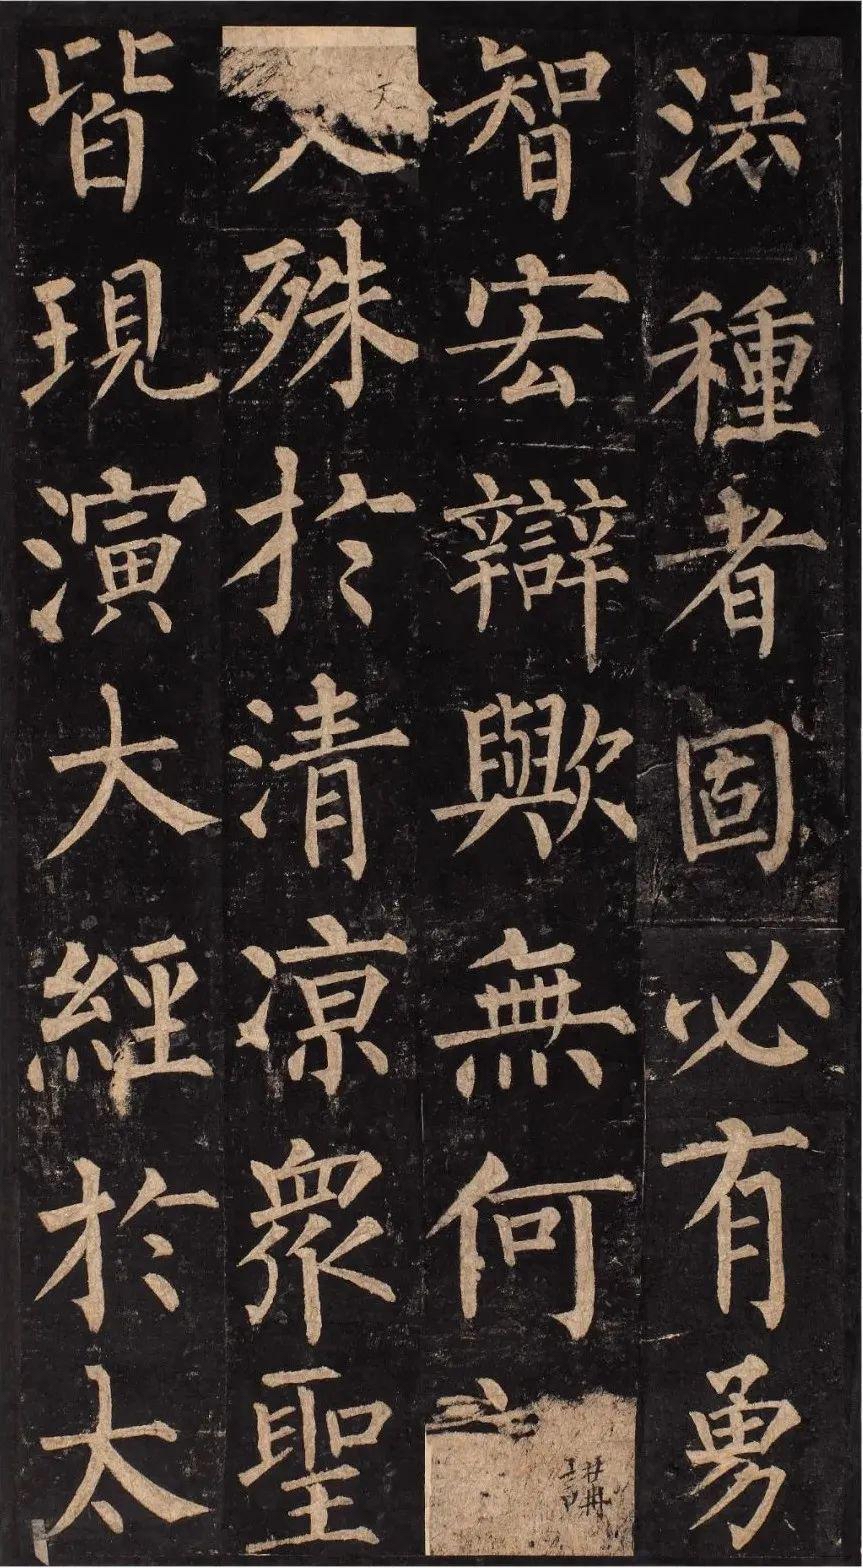 法種者固必有勇
智宏辯歟無何
講
文
殊於清涼眾聖
皆現演大經於太